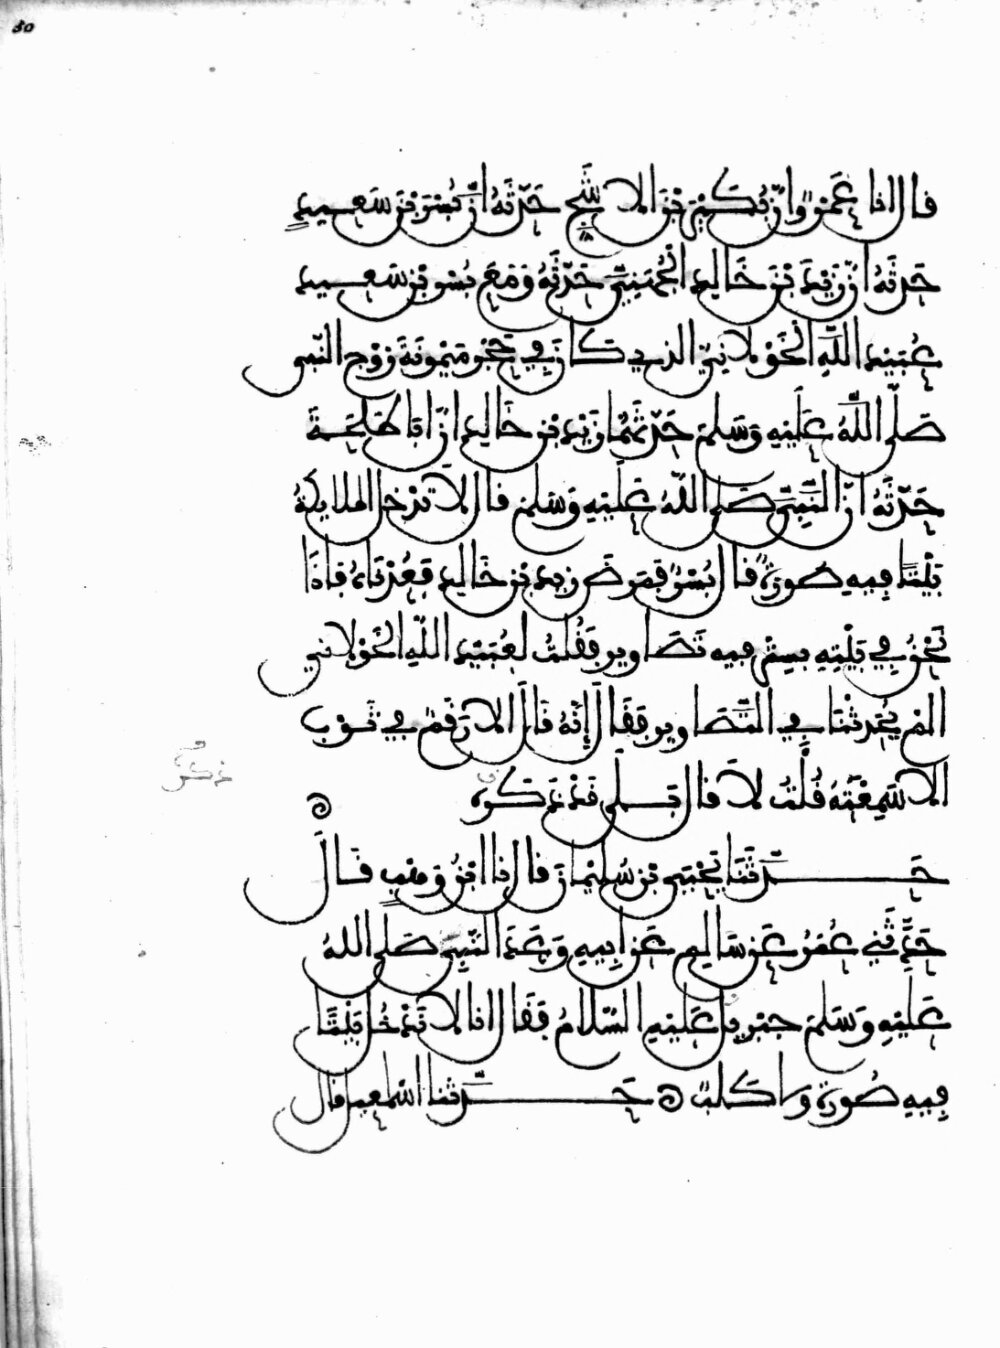 50
قال انا عَمْرٌو اَنَّ بُكَيْرَ بْنَ الاَشَجِّ حَدَّثَهُ اَنَّ بُسْرَ بْنَ سَعِيدٍ
حَدَّثَهُ اَنَّ زَيْدَ بْنَ خَالِدٍ الْجُهَنِيَّ حَدَّثَهُ وَمَعَ بُسْرِ بْنِ سَعِيدٍ
عُبَيْدُ اللَّهِ الْخَوْلَانِيُّ الذي كَانَ فِي حَجْرِ مَيْمُونَةَ زَوْجِ النَّبِي
صَلَّى اللَّهُ عَلَيْهِ وَسَلَّمَ حَدَّثَهُمَا زَيْدُ بْنُ خَالِدٍ اَنَّ اَبَا طَلْحَةَ
حَدَّثَهُ اَنَّ النَّبِيَّ صَلى اللَّهُ عَلَيْهِ وَسَلَّمَ قال لَا تَدْخُلُ الملايكةُ
بَيْتًا فِيهِ صُورَةٌ قال بُسْرٌ فَمَرِضَ زيدُ بْنُ خَالِدٍ فَعُدْنَاهُ فَاِذَا
نَحْنُ فِي بَيْتِهِ بِسِتْرٍ فِيهِ تَصَاوِيرُ فَقُلْتُ لِعُبَيْدِ اللَّهِ الْخَوْلَانِي
اَلَمْ يُحَدِّثْنَا فِي التَّصَاوِيرِ فَقَالَ إِنَّهُ قَالَ اِلَّا رَقْمٌ فِي ثَوْبٍ
اَلَا سَمِعْتَهُ قُلْتُ لَا قال بَلَى قَدْ ذَكَرَهُ
حَدَّثَنَا يَحْيَى بْنُ سُلَيْمَانَ قال نا ابْنُ وَهْبٍ قَالَ
حَدَّثَنِي عُمَرُ عَنْ سَالِمٍ عَنْ اَبِيهِ وَعَدَ النَّبِيَّ صَلى اللهُ
عَلَيْهِ وَسَلَّمَ جبْرِيلُ عَلَيْهِ السَّلَامُ فَقَالَ انا لَا نَدْخُلُ بَيْتًا
فِيهِ صُورَةٌ وَلَا كَلْبٌ حَدَّثنا اسْمَعِيل قال